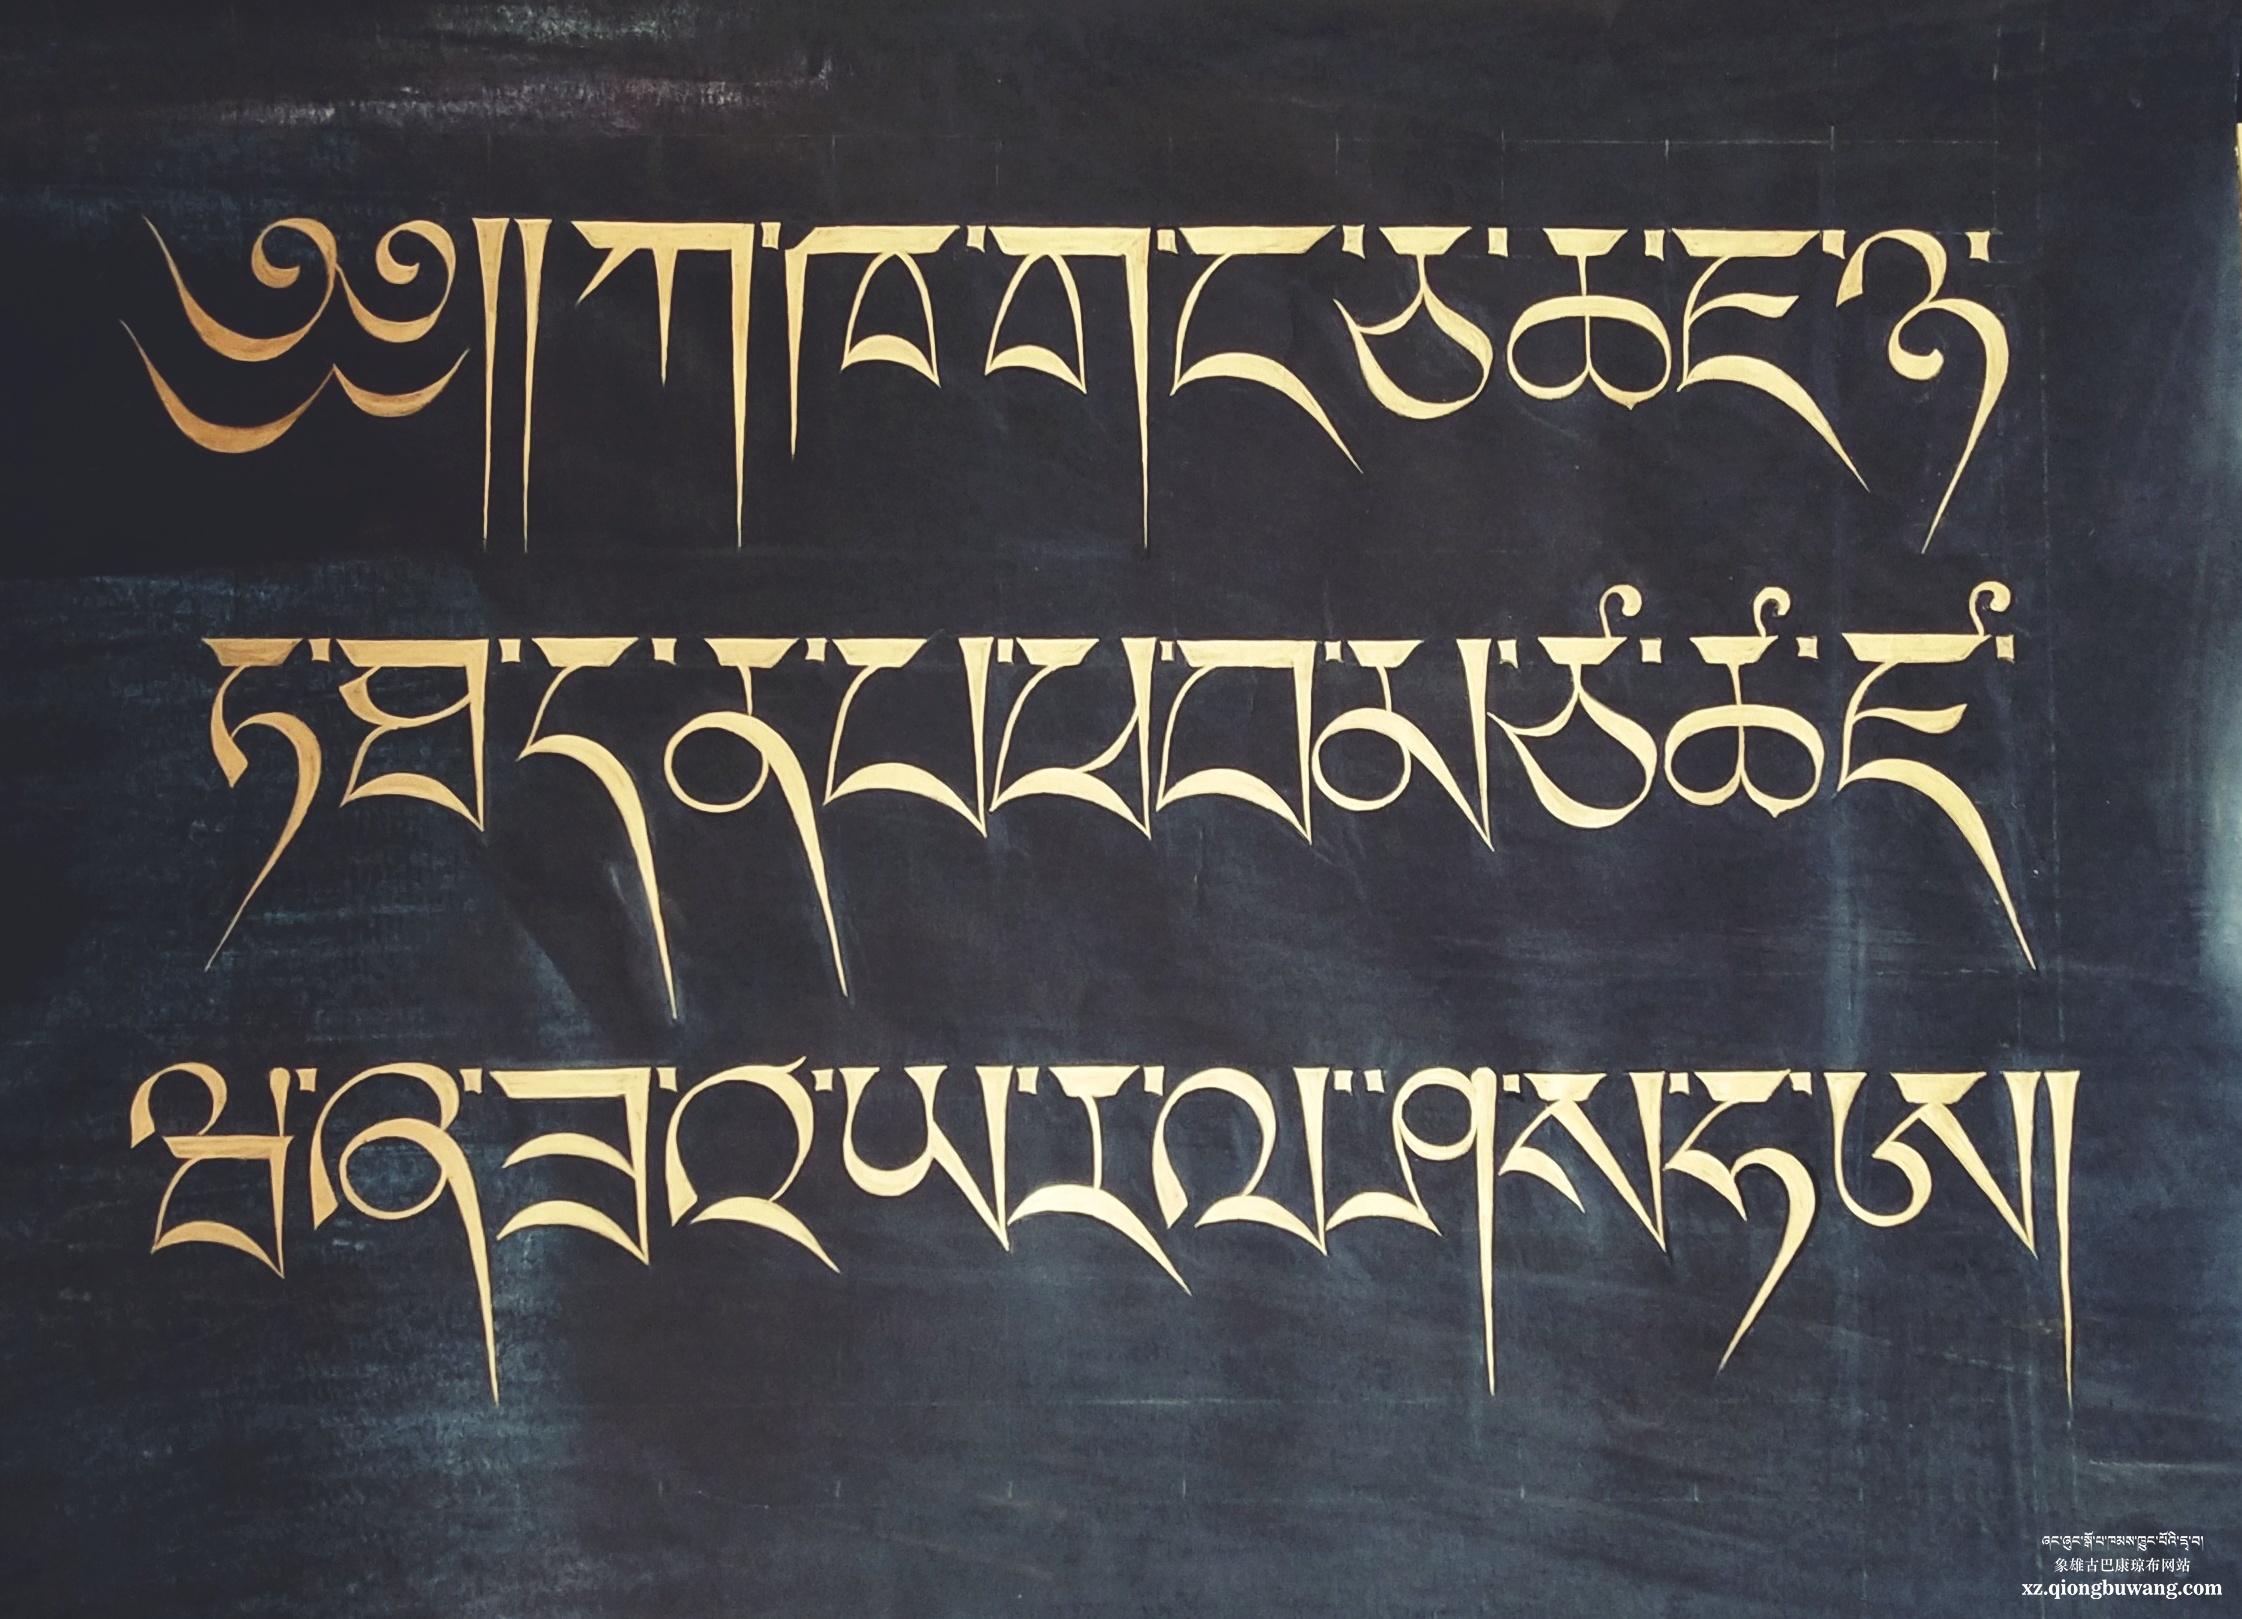 ༄༅།།ཀ་ཁ་ག་ང་ཅ་ཆ་ཇ་ཉ་
ཏ་ཐ་ད་ན་པ་ཕ་བ་མ་ཙ་ཚ་ཛ་
ཝ་ཞ་ཟ་འ་ཡ་ར་ལ་་ཤ་ས་ཧ་ཨ།།
ཞང་ཞུང་སྒོ་པ་ཁམས་ཁྱུང་པོའི་དྲ་བ།
象雄古巴康琼布网站
xz.qiongbuwang.com